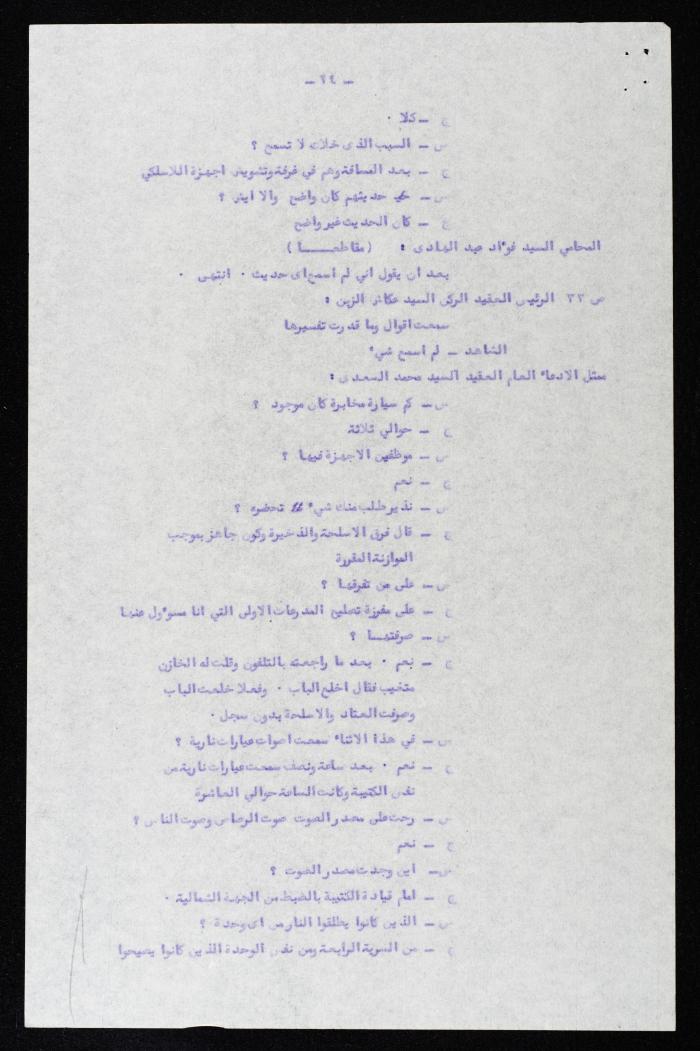 - ٢٤ -
ج - كلا .
س - السبب الذى خلاك لا تسمع ؟
ج - بعد المسافة وهم في غرفة وتشويش اجهزة اللاسلكي
س - حديثهم كان واضح والا ايش ؟
ج - كان الحديث غير واضح
المحامي السيد فوءاد عبد الهادى : (مقاطعـــــا )
بعد ان يقول اني لم اسمع اى حديث . انتهى .
ص ٢٣ الرئيس العقيد الركن السيد عكاش الزبن :
سمعت اقوال وما قدرت تفسيرها
الشاهد - لم اسمع شيء
ممثل الادعاء العام العقيد السيد محمد السعدى :
س - كم سيارة مخابرة كان موجود ؟
ج - حوالي ثلاثة
س - موظفين الاجهزة فيها ؟
ج - نعم
س - نذير طلب منك شيء تحضره ؟
ج - قال فرق الاسلحة والذخيرة وكون جاهز بموجب
الموازنة المقررة
س - على من تفرقها ؟
ج - على مفرزة تصليح المدرعات الاولى التي انا مسوءول عنها
س - صرفتهـــا ؟
ج - نعم . بعد ما راجعته بالتلفون وقلت له الخازن
متغيب فقال اخلع الباب . وفعلا خلعت الباب
وصرفت العتاد والاسلحة بدون سجل .
س - في هذا الاثناء سمعت اصوات عيارات نارية ؟
ج - نعم . بعد ساعة ونصف سمعت عيارات نارية من
نفس الكتيبة وكانت الساعة حوالي العاشرة
س - رحت على مصدر الصوت صوت الرصاص وصوت الناس ؟
ج - نعم
س - اين وجدت مصدر الصوت ؟
ج - امام قيادة الكتيبة بالضبط من الجهة الشمالية .
س - الذين كانوا يطلقوا النار من اى وحدة ؟
ج - من السرية الرابعة ومن نفس الوحدة الذين كانوا يصيحوا